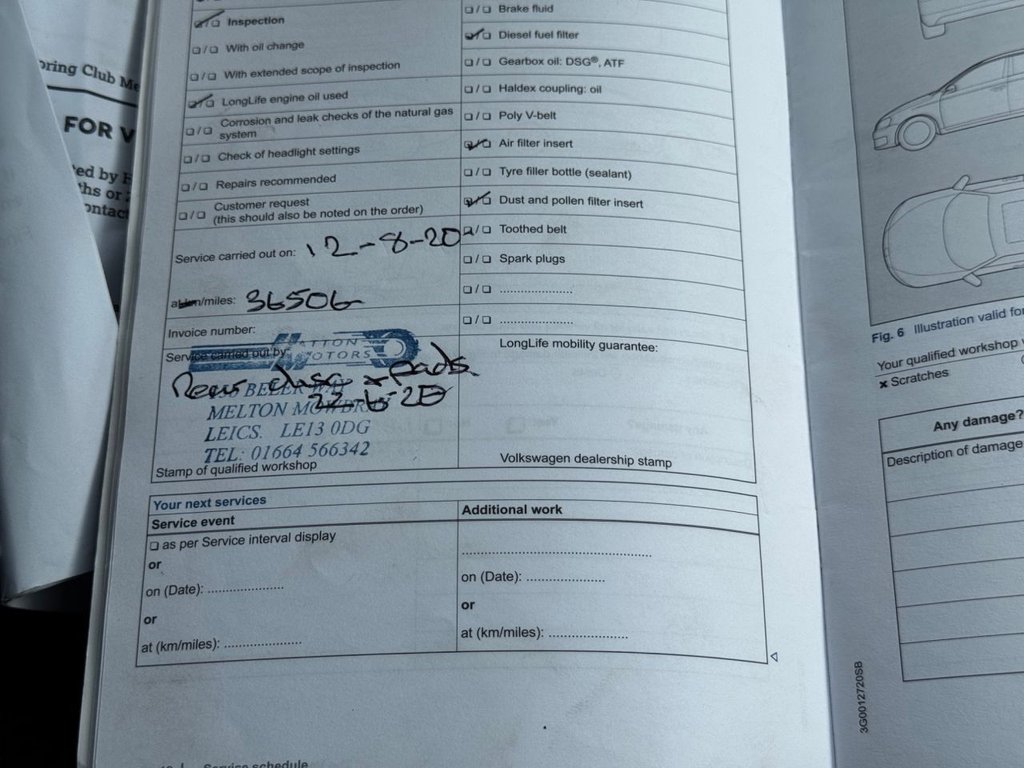 oring Club Me
FOR V
ted by
ths or
ontact
☑/☐ Inspection
☐/☐ With oil change
☐/☐ With extended scope of inspection
☑/☐ LongLife engine oil used
☐/☐ Corrosion and leak checks of the natural gas
system
☐/☐ Check of headlight settings
☐/☐ Repairs recommended
☐/☐ Customer request
(this should also be noted on the order)
Service carried out on: 12-8-20
at km/miles: 36506
Invoice number:
Service carried out by:
HATTON
MOTORS
New discs & pads
22-6-20
BELER WAY
MELTON MOWBR
LEICS. LE13 0DG
TEL: 01664 566342
Stamp of qualified workshop
☐/☐ Brake fluid
☑/☐ Diesel fuel filter
☐/☐ Gearbox oil: DSG®, ATF
☐/☐ Haldex coupling: oil
☐/☐ Poly V-belt
☑/☐ Air filter insert
☐/☐ Tyre filler bottle (sealant)
☑/☐ Dust and pollen filter insert
☐/☐ Toothed belt
☐/☐ Spark plugs
☐/☐ ......................
☐/☐ ......................
LongLife mobility guarantee:
Volkswagen dealership stamp
Your next services
Service event
☐ as per Service interval display
or
on (Date): .....................
or
at (km/miles): .....................
Additional work
.....................................................
on (Date): .....................
or
at (km/miles): .....................
Service schedule
Fig. 6 Illustration valid for
Your qualified workshop
x Scratches
Any damage?
Description of damage
3G0012720SB